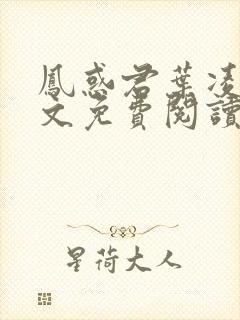 鳳惑君葉凌
文免費閱讀
星荷大人